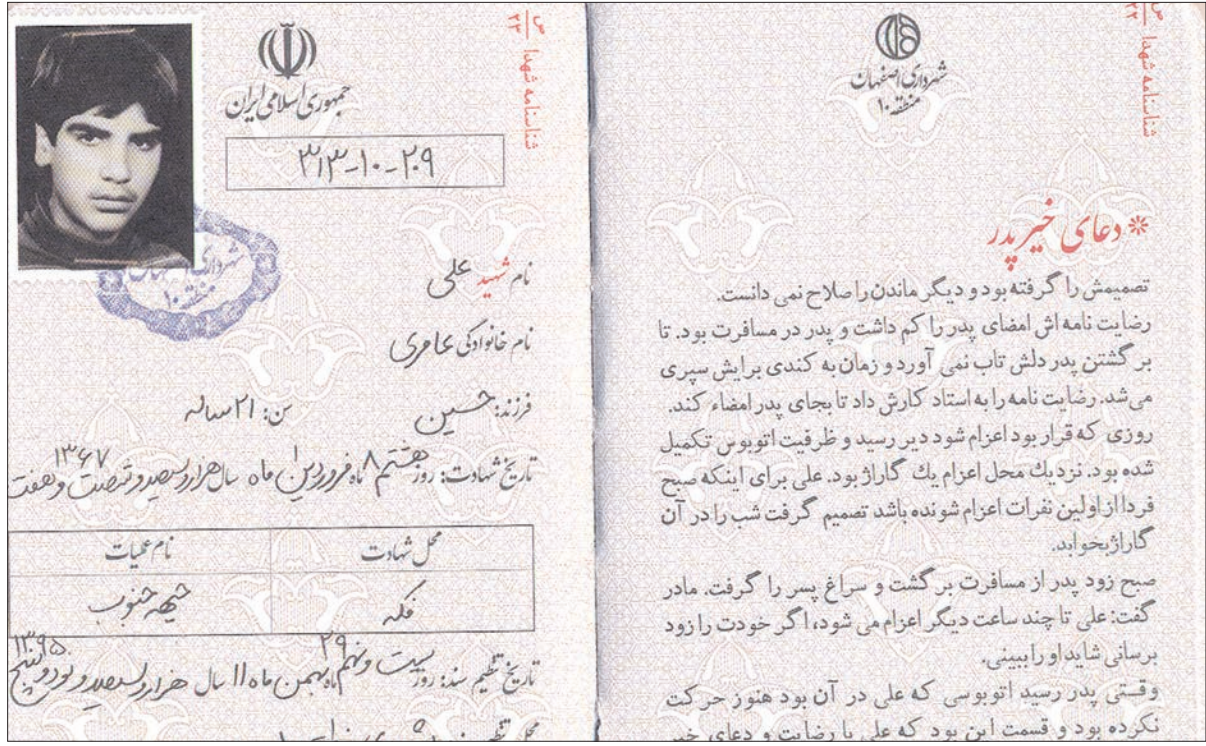 ص ۲۲
شناسنامه شهدا
شهرداری اصفهان
منطقه ۱۰
* دعای خیر پدر
تصمیمش را گرفته بود و دیگر ماندن را صلاح نمی دانست.
رضایت نامه اش امضای پدر را کم داشت و پدر در مسافرت بود. تا
بر گشتن پدر دلش تاب نمی آورد و زمان به کندی برایش سپری
می شد. رضایت نامه را به استاد کارش داد تا بجای پدر امضاء کند.
روزی که قرار بود اعزام شود دیر رسید و ظرفیت اتوبوس تکمیل
شده بود. نزدیك محل اعزام یك گاراژ بود. علی برای اینکه صبح
فردا از اولین نفرات اعزام شونده باشد تصمیم گرفت شب را در آن
گاراژ بخوابد.
صبح زود پدر از مسافرت بر گشت و سراغ پسر را گرفت. مادر
گفت: علی تا چند ساعت دیگر اعزام می شود، اگر خودت را زود
برسانی شاید او را ببینی.
وقتی پدر رسید اتوبوسی که علی در آن بود هنوز حرکت
نکرده بود و قسمت این بود که علی با رضایت و دعای خیر
ص ۲۳
شناسنامه شهدا
جمهوری اسلامی ایران
۳۱۳-۱۰-۲۰۹
شهرداری اصفهان
منطقه ۱۰
نام شهید علی
نام خانوادگی عامری
فرزند: حسین سن: ۲۱ ساله
تاریخ شهادت: روز هشتم ۸ ماه فروردین ۱ ماه سال هزار و سیصد و شصت و هفت ۱۳۶۷
محل شهادت نام عملیات
فکه جبهه جنوب
تاریخ تنظیم سند: روز بیست و نهم ۲۹ ماه بهمن ماه ۱۱ سال هزار و سیصد و نود و پنج ۱۳۹۵